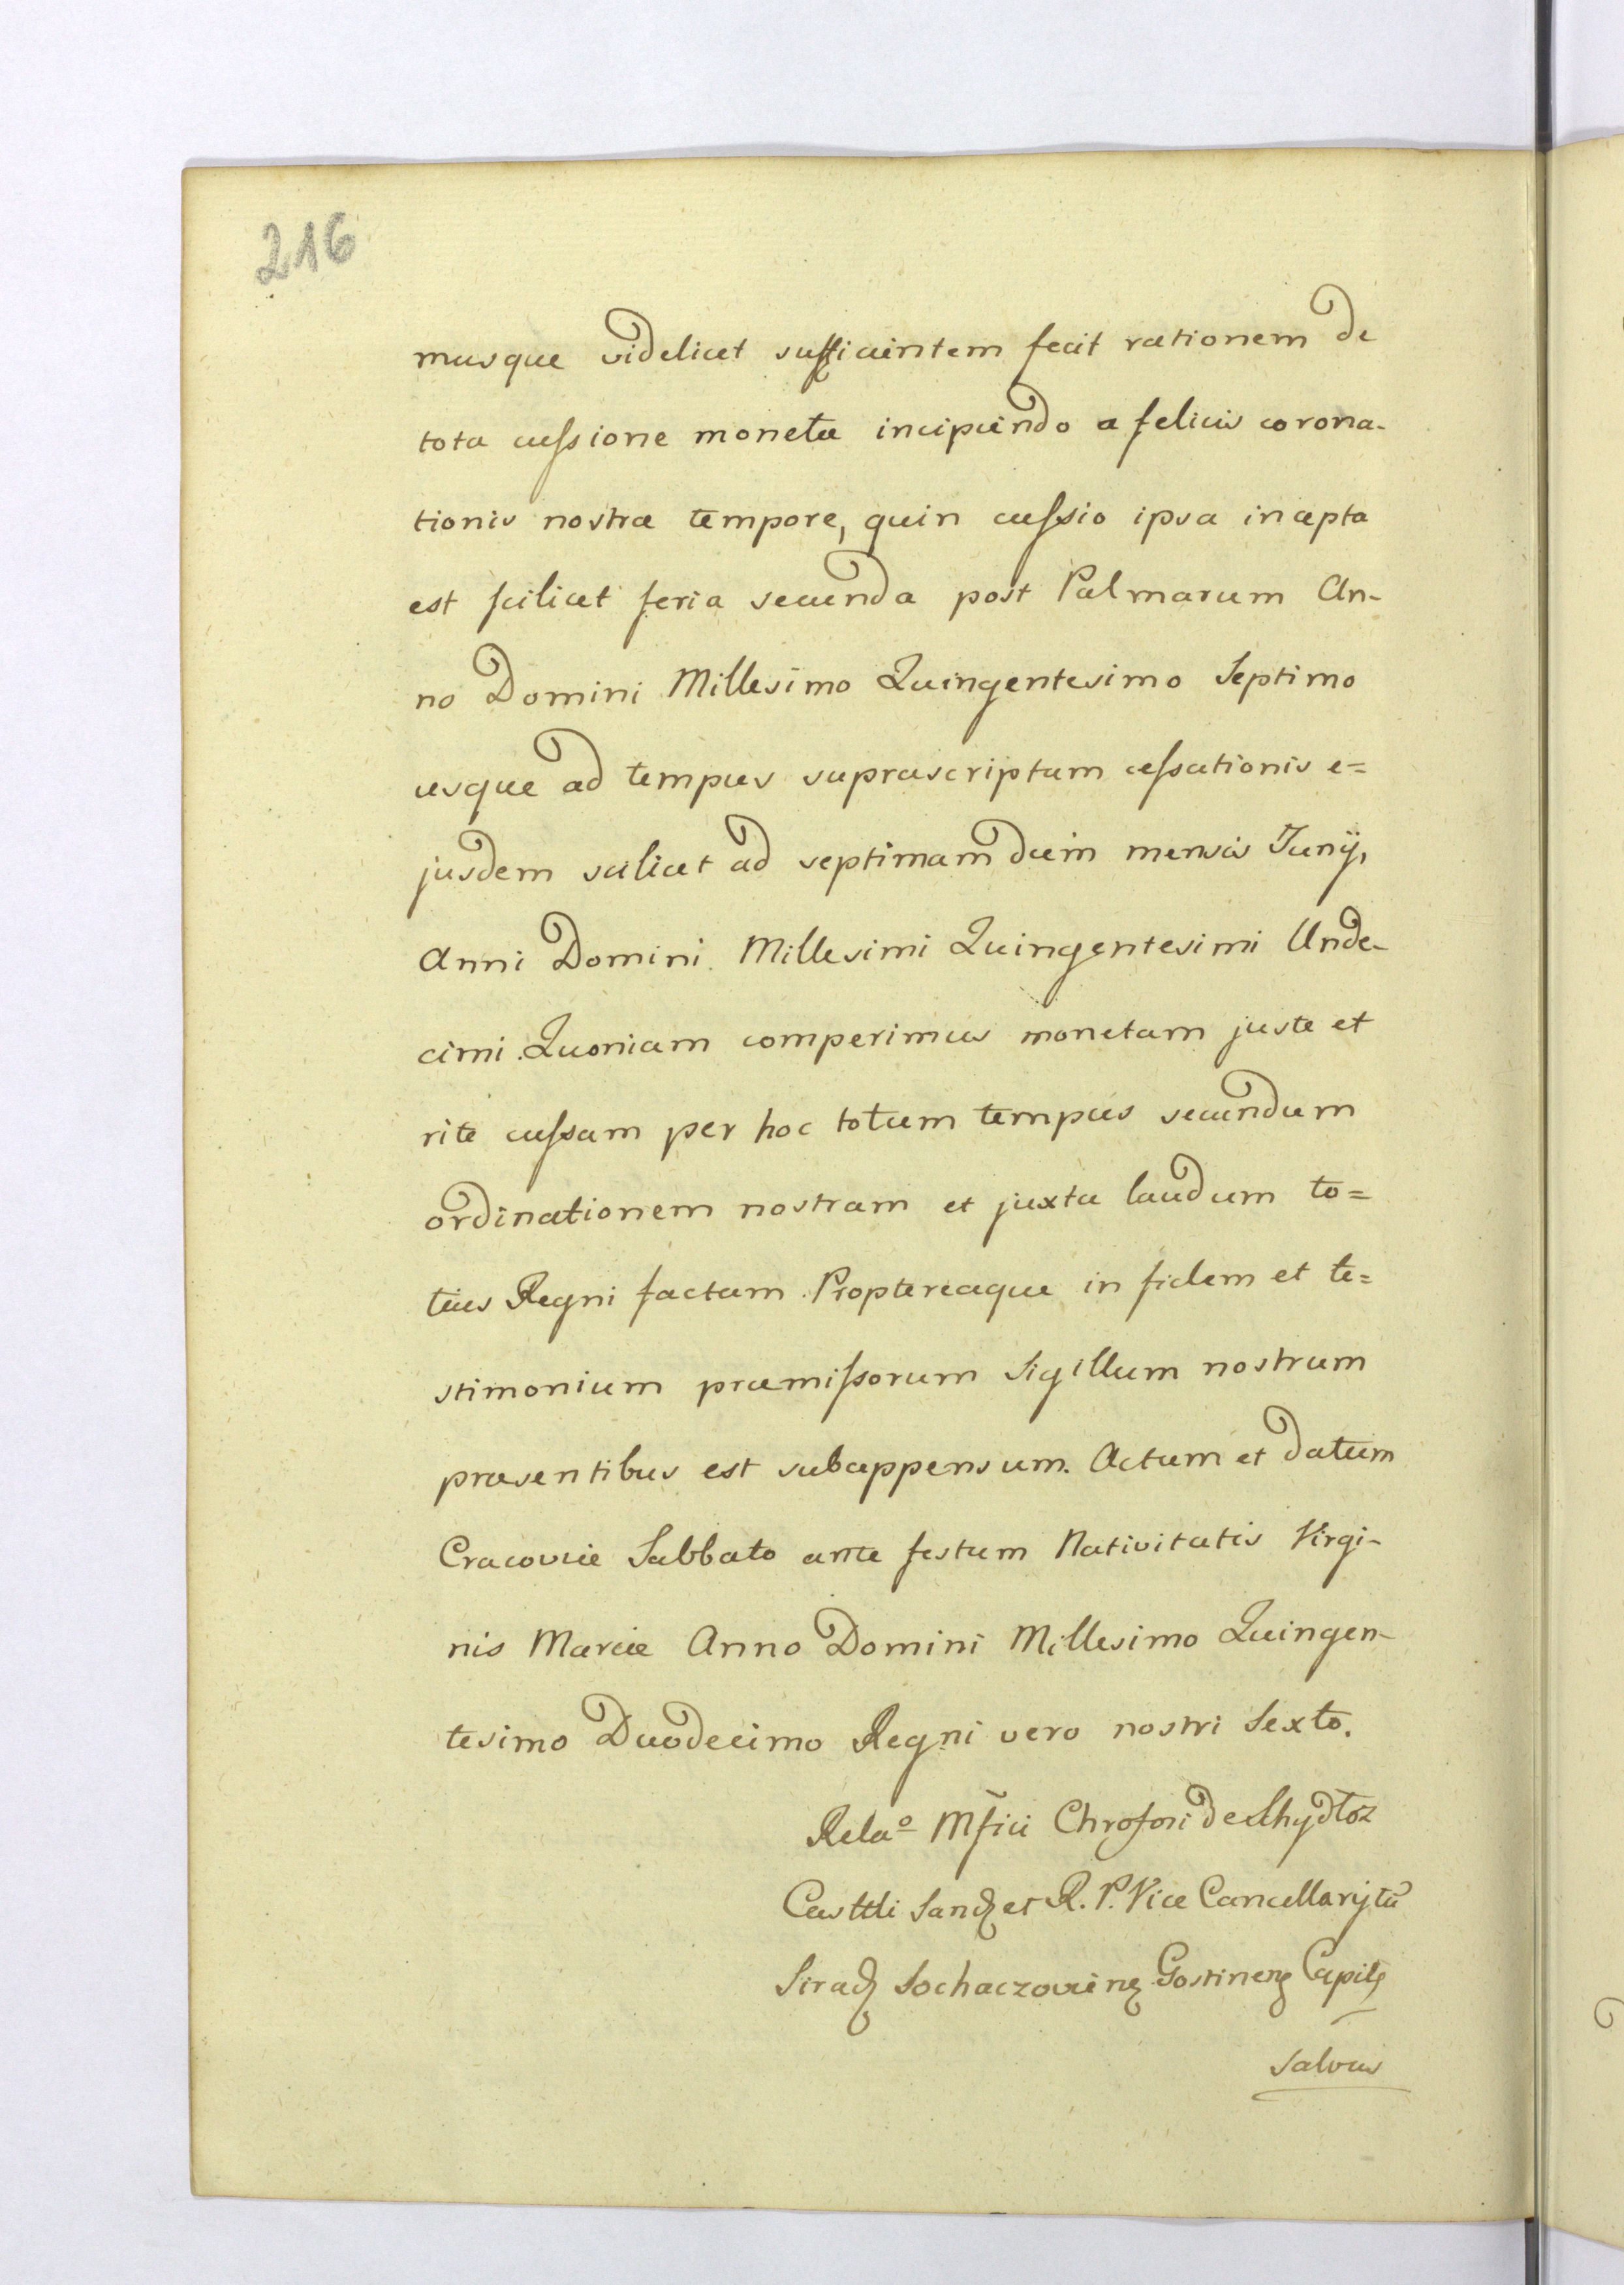 216
musque videlicet sufficientem fecit rationem de
tota cussione monetæ incipiendo a felicis corona-
tionis nostræ tempore, quin cussio ipsa incepta
est scilicet feria secunda post Palmarum An-
no Domini Millesimo Quingentesimo Septimo
usque ad tempus suprascriptum cessationis e=
jusdem scilicet ad septimam diem mensis Junij,
Anni Domini Millesimi Quingentesimi Unde-
cimi. Quoniam comperimus monetam juste et
rite cussam per hoc totum tempus secundum
ordinationem nostram et juxta laudum to=
tius Regni factam. Proptereaque in fidem et te=
stimonium præmissorum Sigillum nostrum
præsentibus est subappensum. Actum et datum
Cracoviæ Sabbato ante festum Nativitatis Virgi-
nis Mariæ Anno Domini Millesimo Quingen-
tesimo Duodecimo Regni vero nostri Sexto.
Relaº Mfici Chrofori de Shydłoz
Castlli Sand et R. P. Vice Cancellarij
Sirad Sochaczovien Gostinen Capit
Salvus